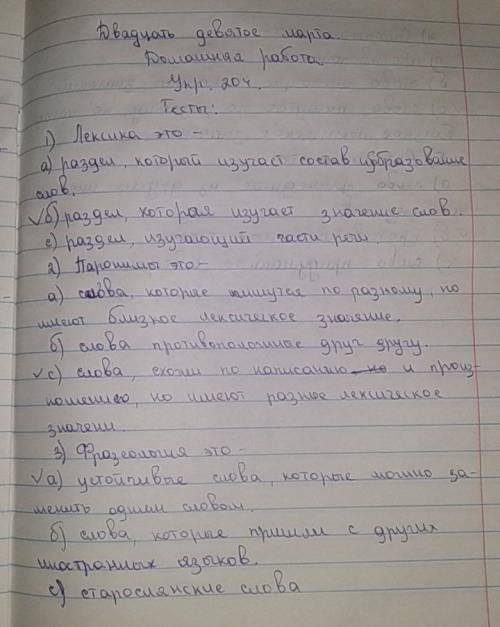 Двадцать девятое марта.
Домашняя работа.
Упр. 204.
Тесты:
1) Лексика это -
а) раздел, который изучает состав и образование
слов.
✓б) раздел, которая изучает значение слов.
с) раздел, изучающий части речи
2) Паронимы это -
а) слова, которые пишутся по разному, но
имеют близкое лексическое значение.
б) слова противоположные друг другу.
✓с) слова, схожи по написанию и произ-
ношению, но имеют разное лексическое
значени.
3) Фразеология это -
✓а) устойчивые слова, которые можно за-
менить одним словом.
б) слова, которые пришли с других
иностранных языков.
с) старослянские слова